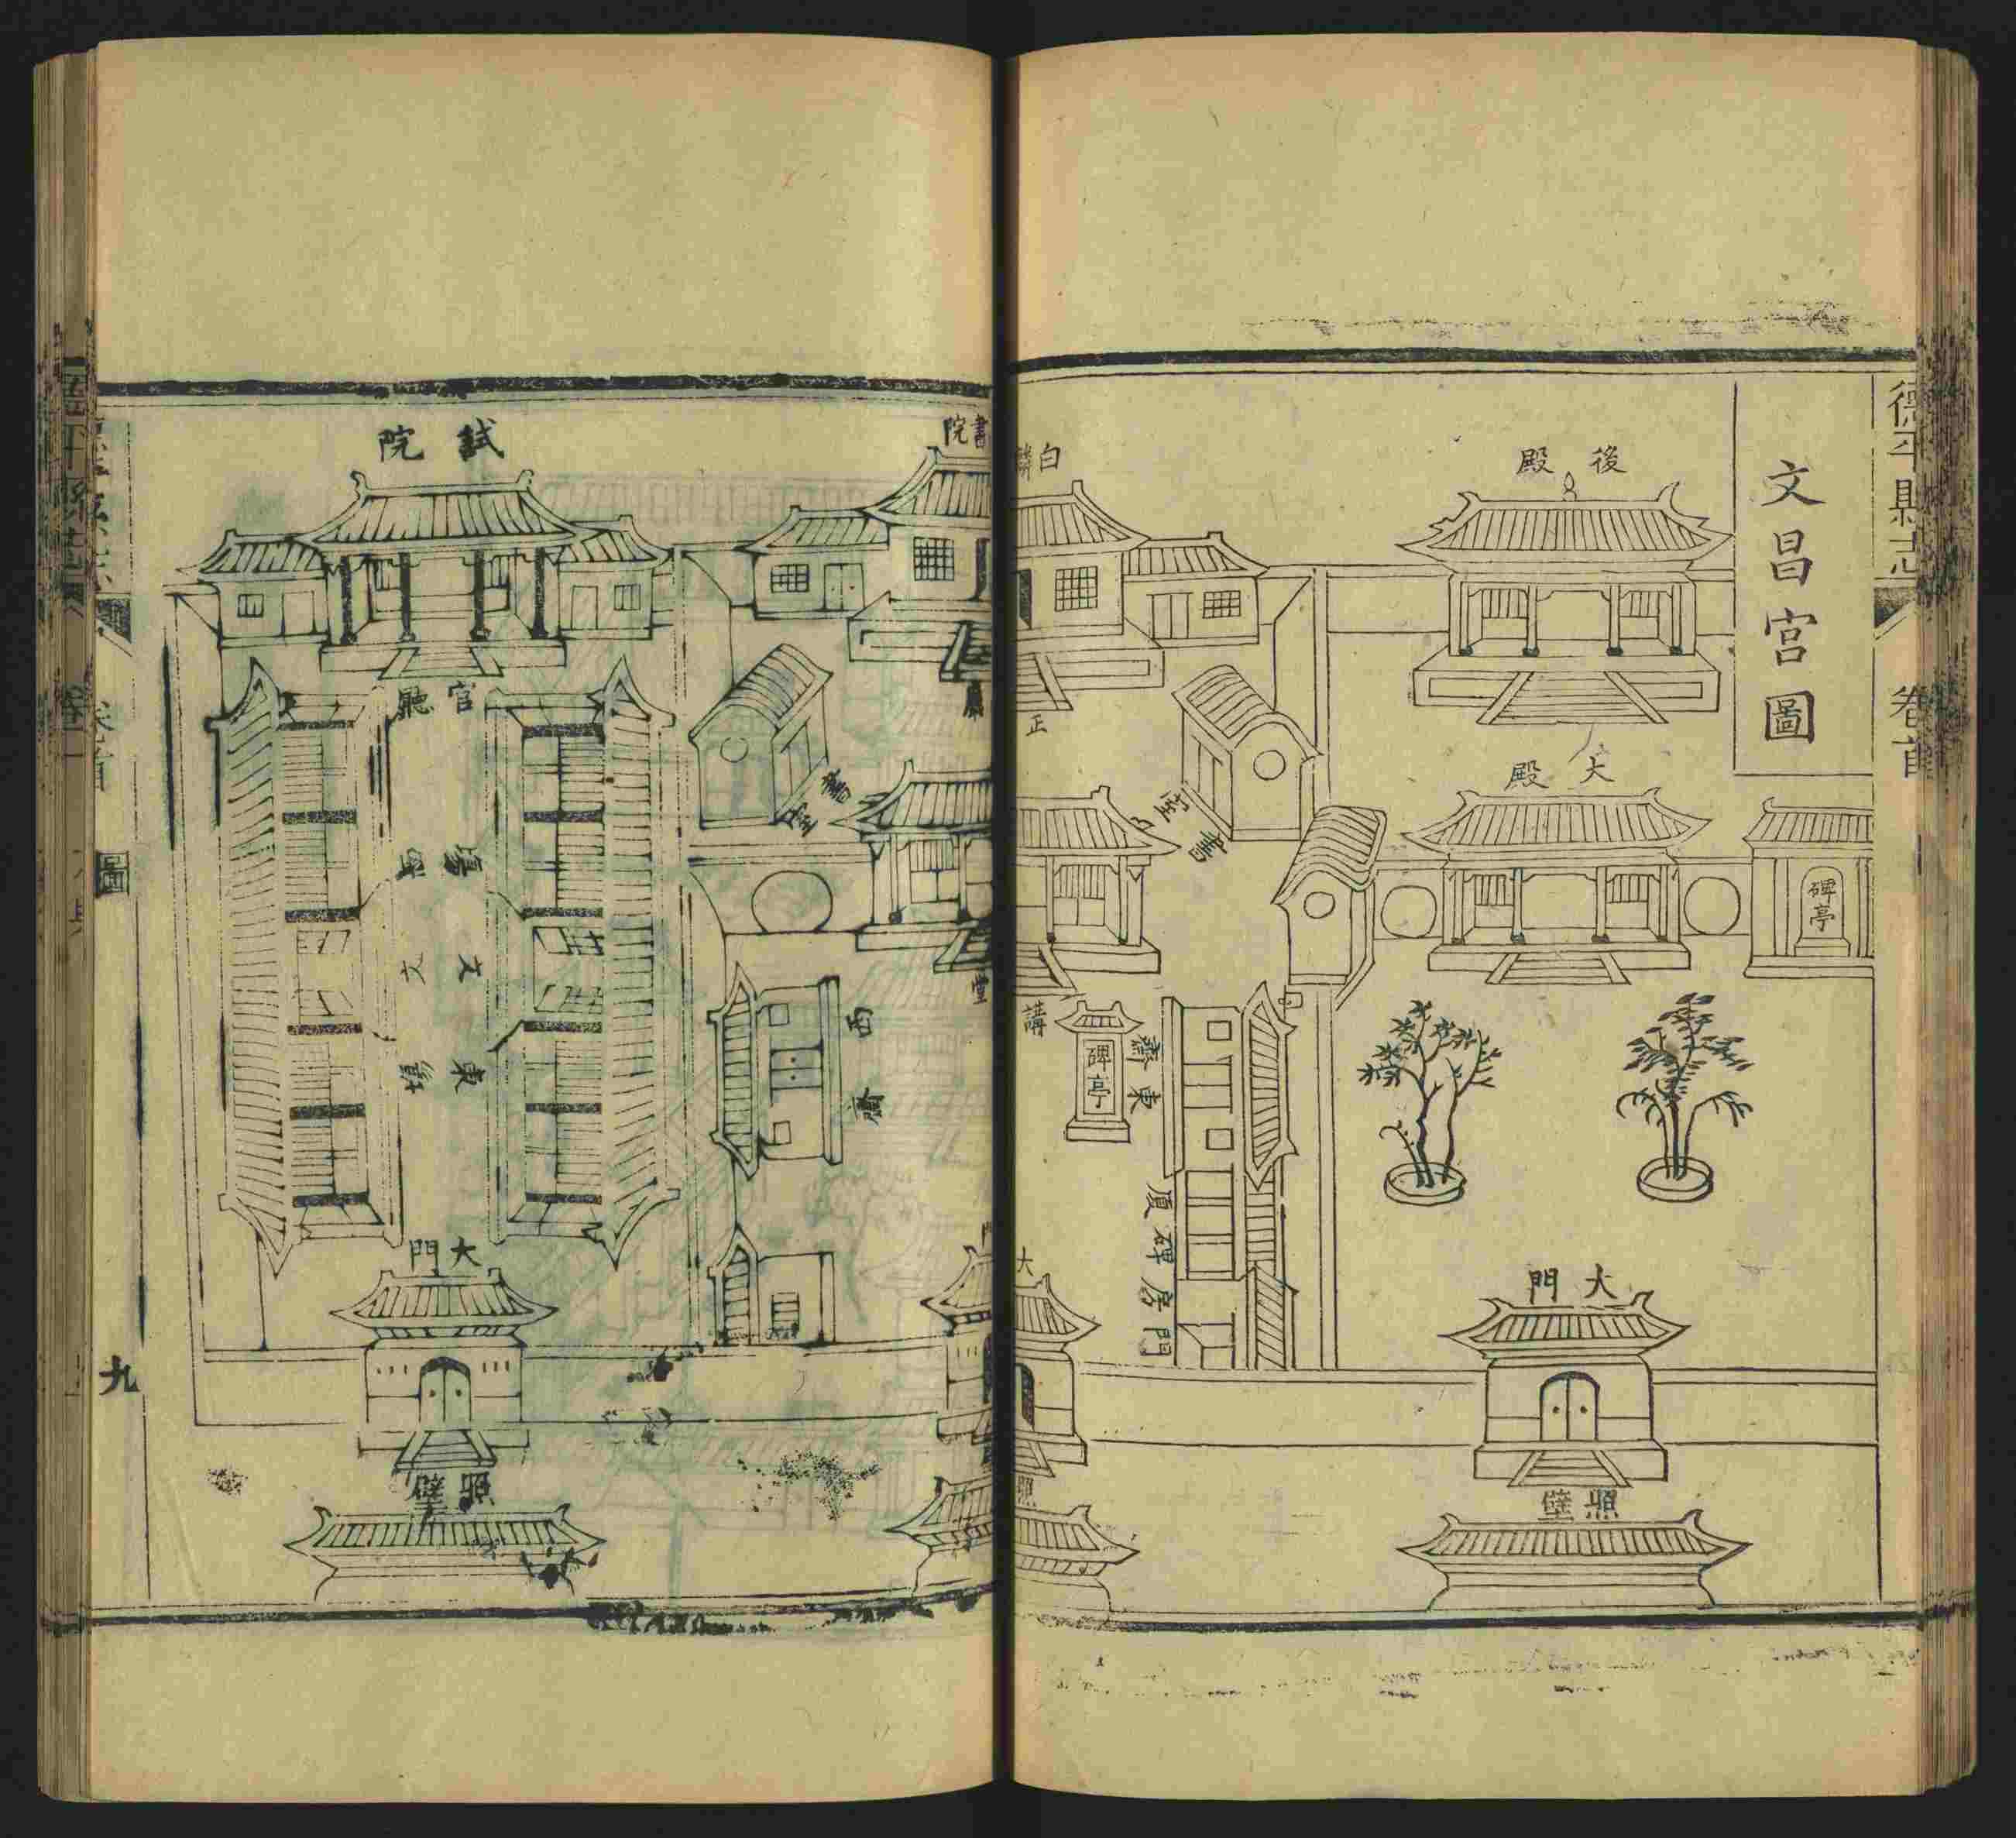 德平縣志
卷首
文昌宮圖
後殿
大殿
碑亭
大門
照壁
白麟書院
正廳
書室
講堂
碑亭
東齋
碑房
門
大門
照
書室
西齋
試院
官廳
文場
東文場
大門
照壁
卷首
圖
九